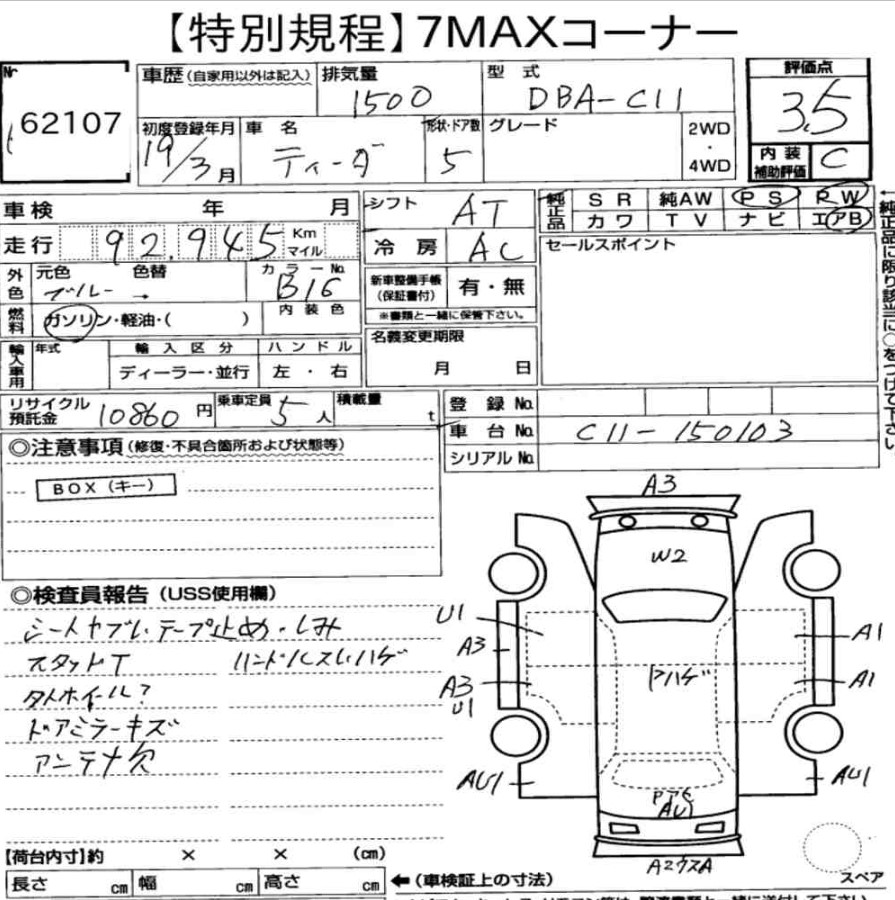 【特別規程】7MAXコーナー
№ 62107
車歴(自家用以外は記入) 排気量 1500 型式 DBA-C11 評価点 3.5
初度登録年月 19/3月 車名 ティーダ 形状・ドア数 5 グレード 2WD・4WD 内装補助評価 C
車検 年 月 シフト AT 純正品 SR 純AW PS PW
カワ TV ナビ エアB
走行 92,945 Km マイル 冷房 AC セールスポイント
←純正品に限り該当に○をつけて下さい
外色 元色 ブルー 色替 → カラーNo. B16 新車整備手帳(保証書付) 有・無
燃料 ガソリン・軽油・( ) 内装色 ※書類と一緒に保管下さい。
輸入車用 年式 輸入区分 ハンドル 名義変更期限
ディーラー・並行 左・右 月 日
リサイクル預託金 10860円 乗車定員 5人 積載量 t 登録No.
車台No. C11-150103
シリアルNo.
◎注意事項(修復・不具合箇所および状態等)
BOX(キー)
◎検査員報告(USS使用欄)
シートヤブレ テープ止め・しみ
スタッドT ハンドルスレハゲ
タイホイール?
ドアミラーキズ
アンテナ欠
A3
W2
U1
A3
A1
A3
U1
ヤハゲ
A1
AU1
AU1
AU1
スペア
【荷台内寸】約 × × (cm)
長さ cm 幅 cm 高さ cm ←(車検証上の寸法)